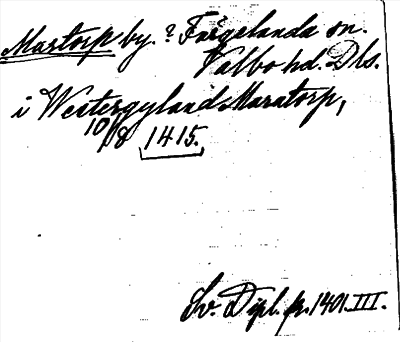 Martorp by. ? Färgelanda sn.
Valbo hd. Dls.
i Westergyland Maratorp,
10/8 1415.
Sv. Dipl. fr. 1401. III.